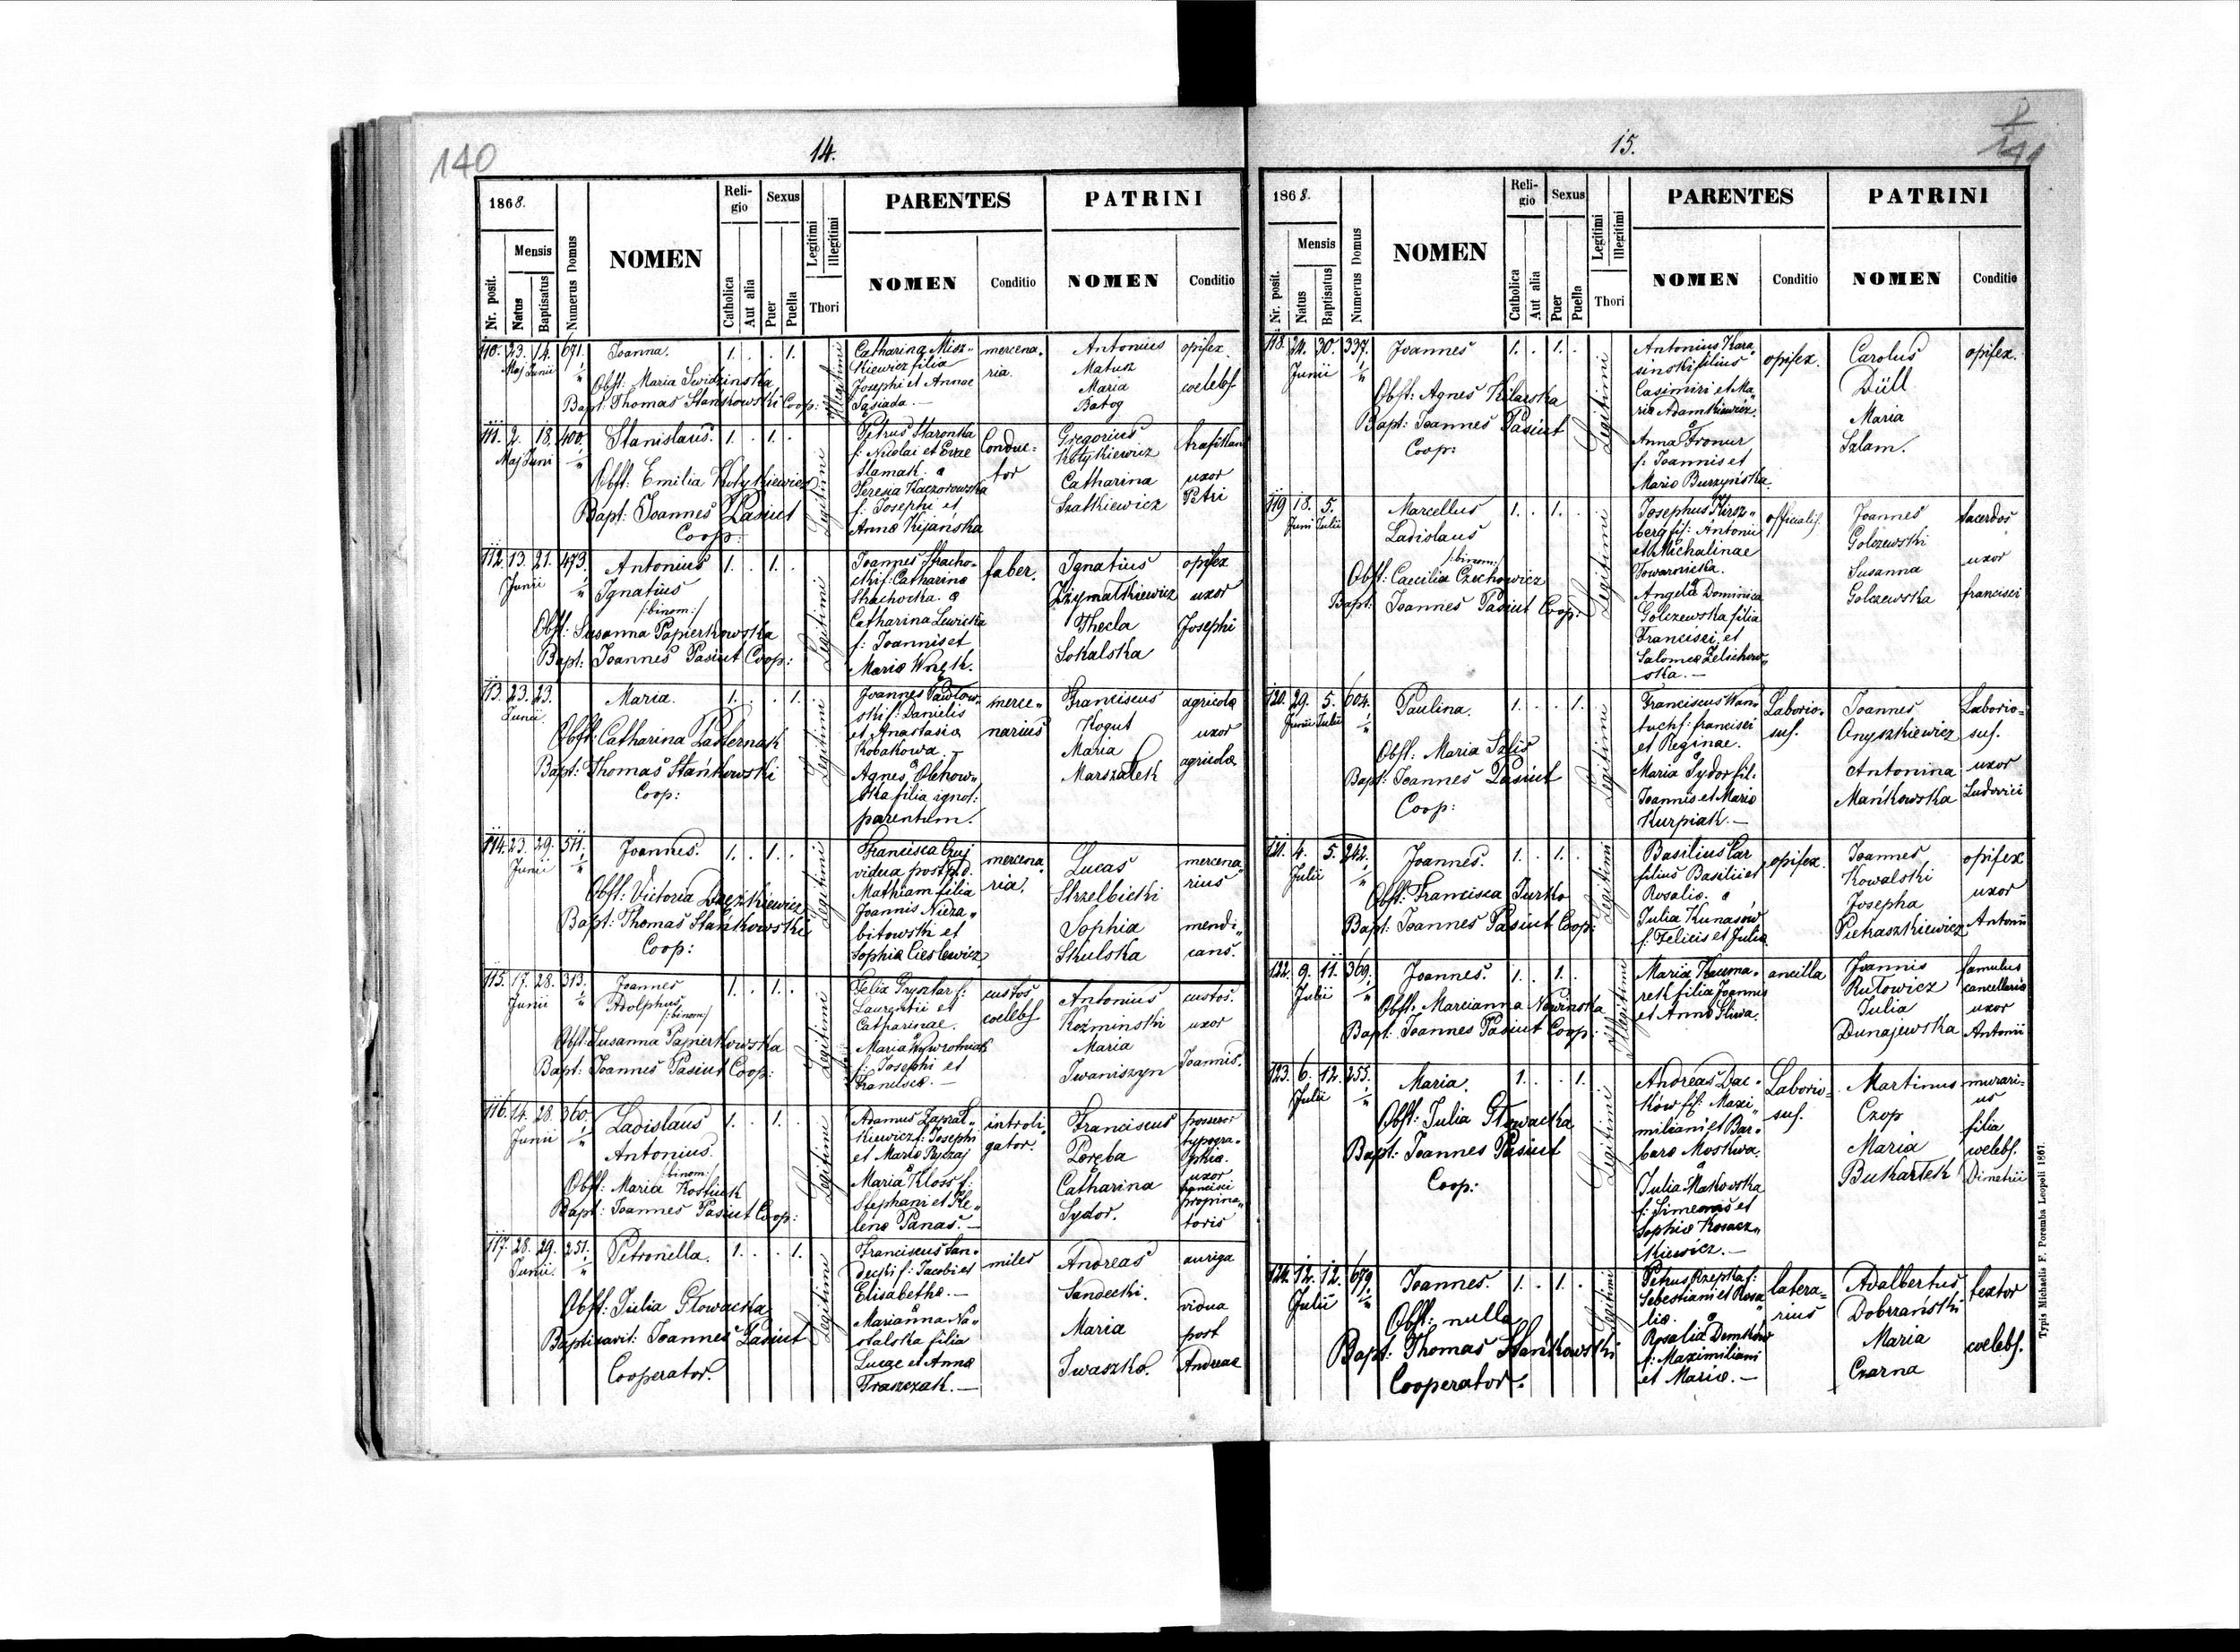 140
14.
1868.
Nr. posit.
Mensis
Natus
Baptisatus
Numerus Domus
NOMEN
Religio
Catholica
Aut alia
Sexus
Puer
Puella
Legitimi
Illegitimi
Thori
PARENTES
NOMEN
Conditio
PATRINI
NOMEN
Conditio
110. 23. 14. 671. Joanna. 1. . . 1.
Maj Junii
Obst: Maria Swidzinska
Bapt: Thomas Stańkowski Coop:
Illegitimi
Catharina Misz„
kiewicz filia
Josephi et Annae
Sąsiada.—
mercena„
ria.
Antonius
Matusz
Maria
Batog
opifex.
coelebs.
111. 2. 18. 400. Stanislaus. 1. . 1. .
Maj Juni
Obst: Emilia Kotykiewicz
Bapt: Joannes Pasiut
Coop:
Legitimi
Petrus Staronka
f: Nicolai et Evae
Slamak. a
Teresia Kaczorowska
f: Josephi et
Anna Kijańska
Conduc=
tor
Gregorius
Kotykiewicz
Catharina
Szatkiewicz
trafikan
uxor
Petri
112. 13. 21. 473. Antonius 1. . 1. .
Junii
Ignatius
/:binom:/
Obst: Susanna Papierkowska
Bapt: Joannes Pasiut Coop:
Legitimi
Joannes Stracho„
cki f: Catharina
Strachocka. a
Catharina Lewicka
f: Joannis et
Maria Wnęk.
faber.
Ignatius
Zżymalkiewicz
Thecla
Sokalska
opifex
uxor
Josephi
113. 23. 23. Maria. 1. . . 1.
Junii.
Obst: Catharina Pasternak
Bapt: Thomas Stańkowski
Coop:
Legitimi
Joannes Pawłow„
ski f: Danielis
et Anastasia
Kobakowa.—
Agnes Olchow„
ska filia ignot:
parentum.
merce„
narius
Franciscus
Kogut
Maria
Marszałek
agricola
uxor
agricola
114. 23. 29. 511. Joannes. 1. . 1. .
Junii
Obst: Victoria
Bapt: Thomas Stańkowski
Coop:
Legitimi
Francisca Gruj
vidua post
Mathiam filia
Joannis Nieza„
bitowski et
Sophia Cieslewicz
mercena„
ria.
Lucas
Strzelbicki
Sophia
Skulska
mercena„
rius
mendi„
cans.
115. 17. 28. 313. Joannes 1. . 1. .
Junii
Adolphus
/:binom:/
Obst: Susanna Papierkowska
Bapt: Joannes Pasiut Coop:
Legitimi
Felix Grysztar f:
Laurentii et
Catharinae.
Maria Wywrotniak
f: Josephi et
Francisca.—
custos
coelebs
Antonius
Kozminski
Maria
Iwaniszyn
custos.
uxor
Joannis.
116. 14. 28. 360. Ladislaus 1. . 1. .
Junii
Antonius.
/:binom:/
Obst: Maria Kostiuk
Bapt: Joannes Pasiut Coop:
Legitimi
Adamus Zaprał„
kiewicz f: Josephi
et Maria Ryczaj
Maria Kloss f:
Stephani et He„
lena Panas.—
introli„
gator.
Franciscus
Poręba
Catharina
Sydor.
possessor
typogra„
phia.
uxor
francisci
propina„
toris
117. 28. 29. 251. Petronella. 1. . . 1.
Junii.
Obst: Julia Głowacka
Baptisavit: Joannes Pasiut
Cooperator.
Legitimi
Franciscus San„
decki f: Jacobi et
Elisabetha.—
Marianna Na„
stalska filia
Lucae et Anna
Traszczak.—
miles
Andreas
Sandecki.
Maria
Iwaszko.
auriga
vidua
post
Andreae
15.
1868.
Nr. posit.
Mensis
Natus
Baptisatus
Numerus Domus
NOMEN
Religio
Catholica
Aut alia
Sexus
Puer
Puella
Legitimi
Illegitimi
Thori
PARENTES
NOMEN
Conditio
PATRINI
NOMEN
Conditio
118. 24. 30. 337. Joannes 1. . 1. .
Junii
Obst: Agnes Kilarska
Bapt: Joannes Pasiut
Coop:
Legitimi
Antonius Kara„
sinski filius
Casimiri et Ma„
ria Adamkiewicz.
Anna Fronur
f: Joannis et
Maria Burzyńska.
opifex.
Carolus
Düll
Maria
Szlam.
opifex.
119 18. 5. Marcellus 1. . 1. .
Juni Julii
Ladislaus
/:binom:/
Obst: Caecilia Czechowicz
Bapt: Joannes Pasiut Coop:
Legitimi
Josephus Hirsz„
berg f: Antonii
et Michalinae
Towarnicka.
Angela Dominica
Golczewska filia
Francisci et
Salomea Zelichow„
ska.—
officialis.
Joannes
Golczewski
Susanna
Golczewska
sacerdos
uxor
francisci
120. 29. 5. 604. Paulina. 1. . . 1.
Junii Julii
Obst: Maria Szlis
Bapt: Joannes Pasiut
Coop:
Legitimi
Franciscus Wan„
tuch f: francisci
et Reginae.
Maria Sydor fil:
Joannis et Maria
Kurpiak.—
Laborio„
sus.
Joannes
Onyszkiewicz
Antonina
Mańkowska
Laborio=
sus.
uxor
Ludovici
121. 4. 5. 242. Joannes. 1. . 1. .
Julii
Obst: Francisca Turko
Bapt: Joannes Pasiut Coop:
Legitimi
Basilius Car
filius Basilii et
Rosalia. a
Julia Kunasów
f: Felicis et Julia
opifex.
Joannes
Kowalski
Josepha
Pietraszkiewicz
opifex
uxor
Antonii
122. 9. 11. 369. Joannes. 1. . 1. .
Julii
Obst: Marcianna Nowinska
Bapt: Joannes Pasiut Coop:
Illegitimi
Maria
rek filia Joannis
et Anna Sliwa.
ancilla
Joannis
Rutowicz
Julia
Dunajewska
famulus
cancellaria
uxor
Antonii
123. 6. 12. 255. Maria. 1. . . 1.
Julii
Obst: Julia Głowacka
Bapt: Joannes Pasiut
Coop:
Legitimi
Andreas Dac„
ków f: Maxi„
miliani et Bar„
bara Moskwa.
a
Julia Makowska
f: Simeonis et
Sophia Kosacz„
kiewicz.—
Laborio=
sus.
Martinus
Czop
Maria
Bukartek
murari=
us
filia
coelebs.
Dimetrii
124. 12. 12. 679. Joannes. 1. . 1. .
Julii
Obst: nulla
Bapt: Thomas Stańkowski
Cooperator.
Legitimi
Petrus Rzepka f:
Sebestiani et Rosa„
lia. a
Rosalia Demków
f: Maximiliani
et Maria.—
latera=
rius
Adalbertus
Dobrzański
Maria
Czarna
textor
coelebs.
Typis Michaelis F. Poremba Leopoli 1867.